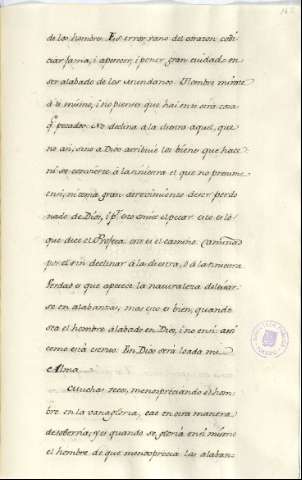 de los hombres. Es error vano del corazon, codi-
ciar fama, i aparecer, i poner gran cuidado en
ser alabado de los mundanos. Hombre mirate
à ti mismo, i no pienses que hai en ti otra cosa
q.e pecador. No declina à la diestra aquel, que
no asi, sino à Dios atribuie los bienes que hace:
ni se convierte à la siniestra el que no presume
en si, ni toma gran atrevimiento de ser perdo
nado de Dios, i p.r esto envie el pecar. esto es lo
que dice el Profeta: este es el camino. Caminad
por el sin declinar à la diestra, ò à la siniestra
Verdad es que apetece la naturaleza deleitar-
se en alabanzas, mas esto es bien, quando
sea el hombre alabado en Dios, i no en si: assi
como està escrito: En Dios serà loada mi
Alma.
Muchas veces, menospreciando el hom-
bre en la vanagloria, cae en otra manera
de sobervia; y es quando se gloria en si mismo
el hombre de que menosprecia las alaban-